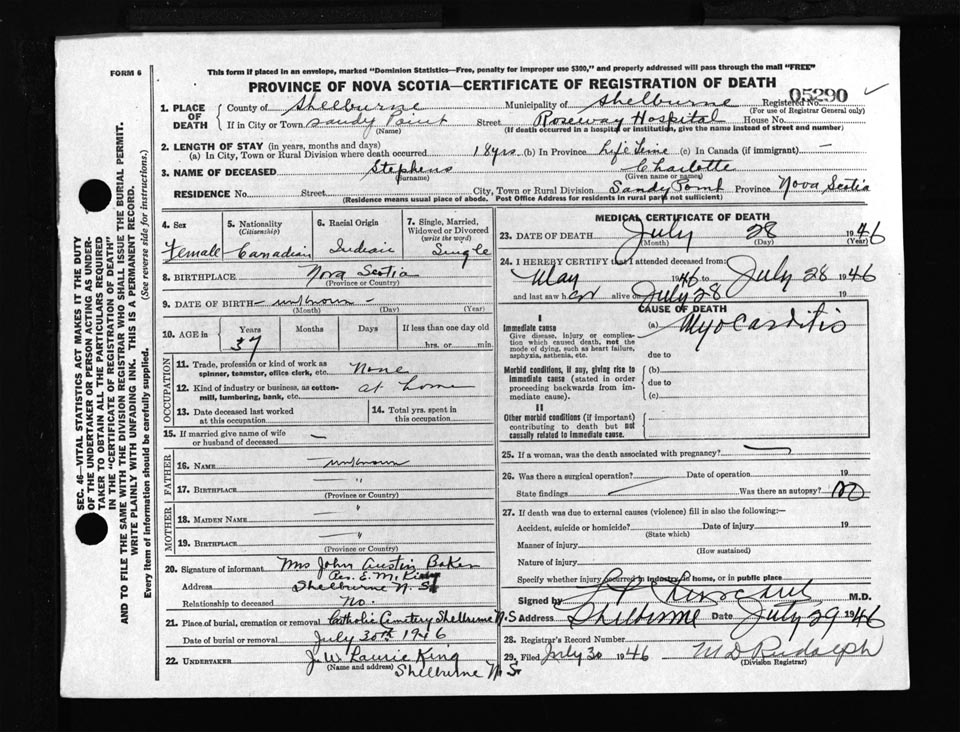 FORM 6
This form if placed in an envelope, marked "Dominion Statistics—Free, penalty for improper use $300," and properly addressed will pass through the mail "FREE"
PROVINCE OF NOVA SCOTIA—CERTIFICATE OF REGISTRATION OF DEATH
05290
1. PLACE OF DEATH
County of Shelburne Municipality of Shelburne Registered No.
(For use of Registrar General only)
If in City or Town Sandy Point Street Roseway Hospital House No.
(Name) (If death occurred in a hospital or institution, give the name instead of street and number)
2. LENGTH OF STAY (in years, months and days)
(a) In City, Town or Rural Division where death occurred 18 yrs (b) In Province Life Time (c) In Canada (if immigrant) —
3. NAME OF DECEASED Stephens Charlotte
(Surname) (Given name or names)
RESIDENCE No. Street City, Town or Rural Division Sandy Point Province Nova Scotia
(Residence means usual place of abode. Post Office Address for residents in rural parts not sufficient)
4. Sex
Female
5. Nationality
(Citizenship)
Canadian
6. Racial Origin
Indian
7. Single, Married, Widowed or Divorced
(write the word)
Single
8. BIRTHPLACE Nova Scotia
(Province or Country)
9. DATE OF BIRTH - unknown -
(Month) (Day) (Year)
10. AGE in
Years Months Days If less than one day old
37
hrs. or min.
OCCUPATION
11. Trade, profession or kind of work as spinner, teamster, office clerk, etc. None
12. Kind of industry or business, as cotton-mill, lumbering, bank, etc. at home
13. Date deceased last worked at this occupation
14. Total yrs. spent in this occupation
15. If married give name of wife or husband of deceased —
FATHER
16. NAME unknown
17. BIRTHPLACE — "
(Province or Country)
MOTHER
18. MAIDEN NAME — "
19. BIRTHPLACE — "
(Province or Country)
20. Signature of informant Mrs John Austin Baker
Per. E. M. King
Address Shelburne N.S.
Relationship to deceased No.
21. Place of burial, cremation or removal Catholic Cemetery Shelburne N.S
Date of burial or removal July 30th 1946
22. UNDERTAKER J. W. Laurie King
(Name and address) Shelburne N.S.
MEDICAL CERTIFICATE OF DEATH
23. DATE OF DEATH July 28 1946
(Month) (Day) (Year)
24. I HEREBY CERTIFY that I attended deceased from:
May 1946 to July 28 1946
and last saw her alive on July 28 19
CAUSE OF DEATH
I
Immediate cause
Give disease, injury or complication which caused death, not the mode of dying, such as heart failure, asphyxia, asthenia, etc.
(a) Myocarditis
due to
Morbid conditions, if any, giving rise to immediate cause (stated in order proceeding backwards from immediate cause).
(b)
due to
(c)
II
Other morbid conditions (if important) contributing to death but not causally related to immediate cause.
25. If a woman, was the death associated with pregnancy?
26. Was there a surgical operation? Date of operation 19
State findings Was there an autopsy? no
27. If death was due to external causes (violence) fill in also the following:—
Accident, suicide or homicide? Date of injury 19
(State which)
Manner of injury
(How sustained)
Nature of injury
Specify whether injury occurred in industry, in home, or in public place
Signed by M.D.
Address Shelburne Date July 29 1946
28. Registrar's Record Number
29. Filed July 30 1946 M D Rudolph
(Division Registrar)
SEC. 46—VITAL STATISTICS ACT MAKES IT THE DUTY
OF THE UNDERTAKER OR PERSON ACTING AS UNDER-
TAKER TO OBTAIN ALL THE PARTICULARS REQUIRED
IN THE "CERTIFICATE OF REGISTRATION OF DEATH"
AND TO FILE THE SAME WITH THE DIVISION REGISTRAR WHO SHALL ISSUE THE BURIAL PERMIT.
WRITE PLAINLY WITH UNFADING INK. THIS IS A PERMANENT RECORD.
Every item of information should be carefully supplied. (See reverse side for instructions.)